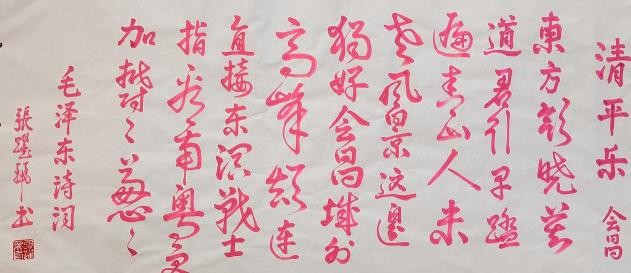 清平乐 会昌
東方欲晓莫
道君行早踏
遍青山人未
老风景这邊
独好会昌城外
高峰颠連
直接东溟戰士
指看南粤更
加郁々葱々
毛泽东诗词
張 书